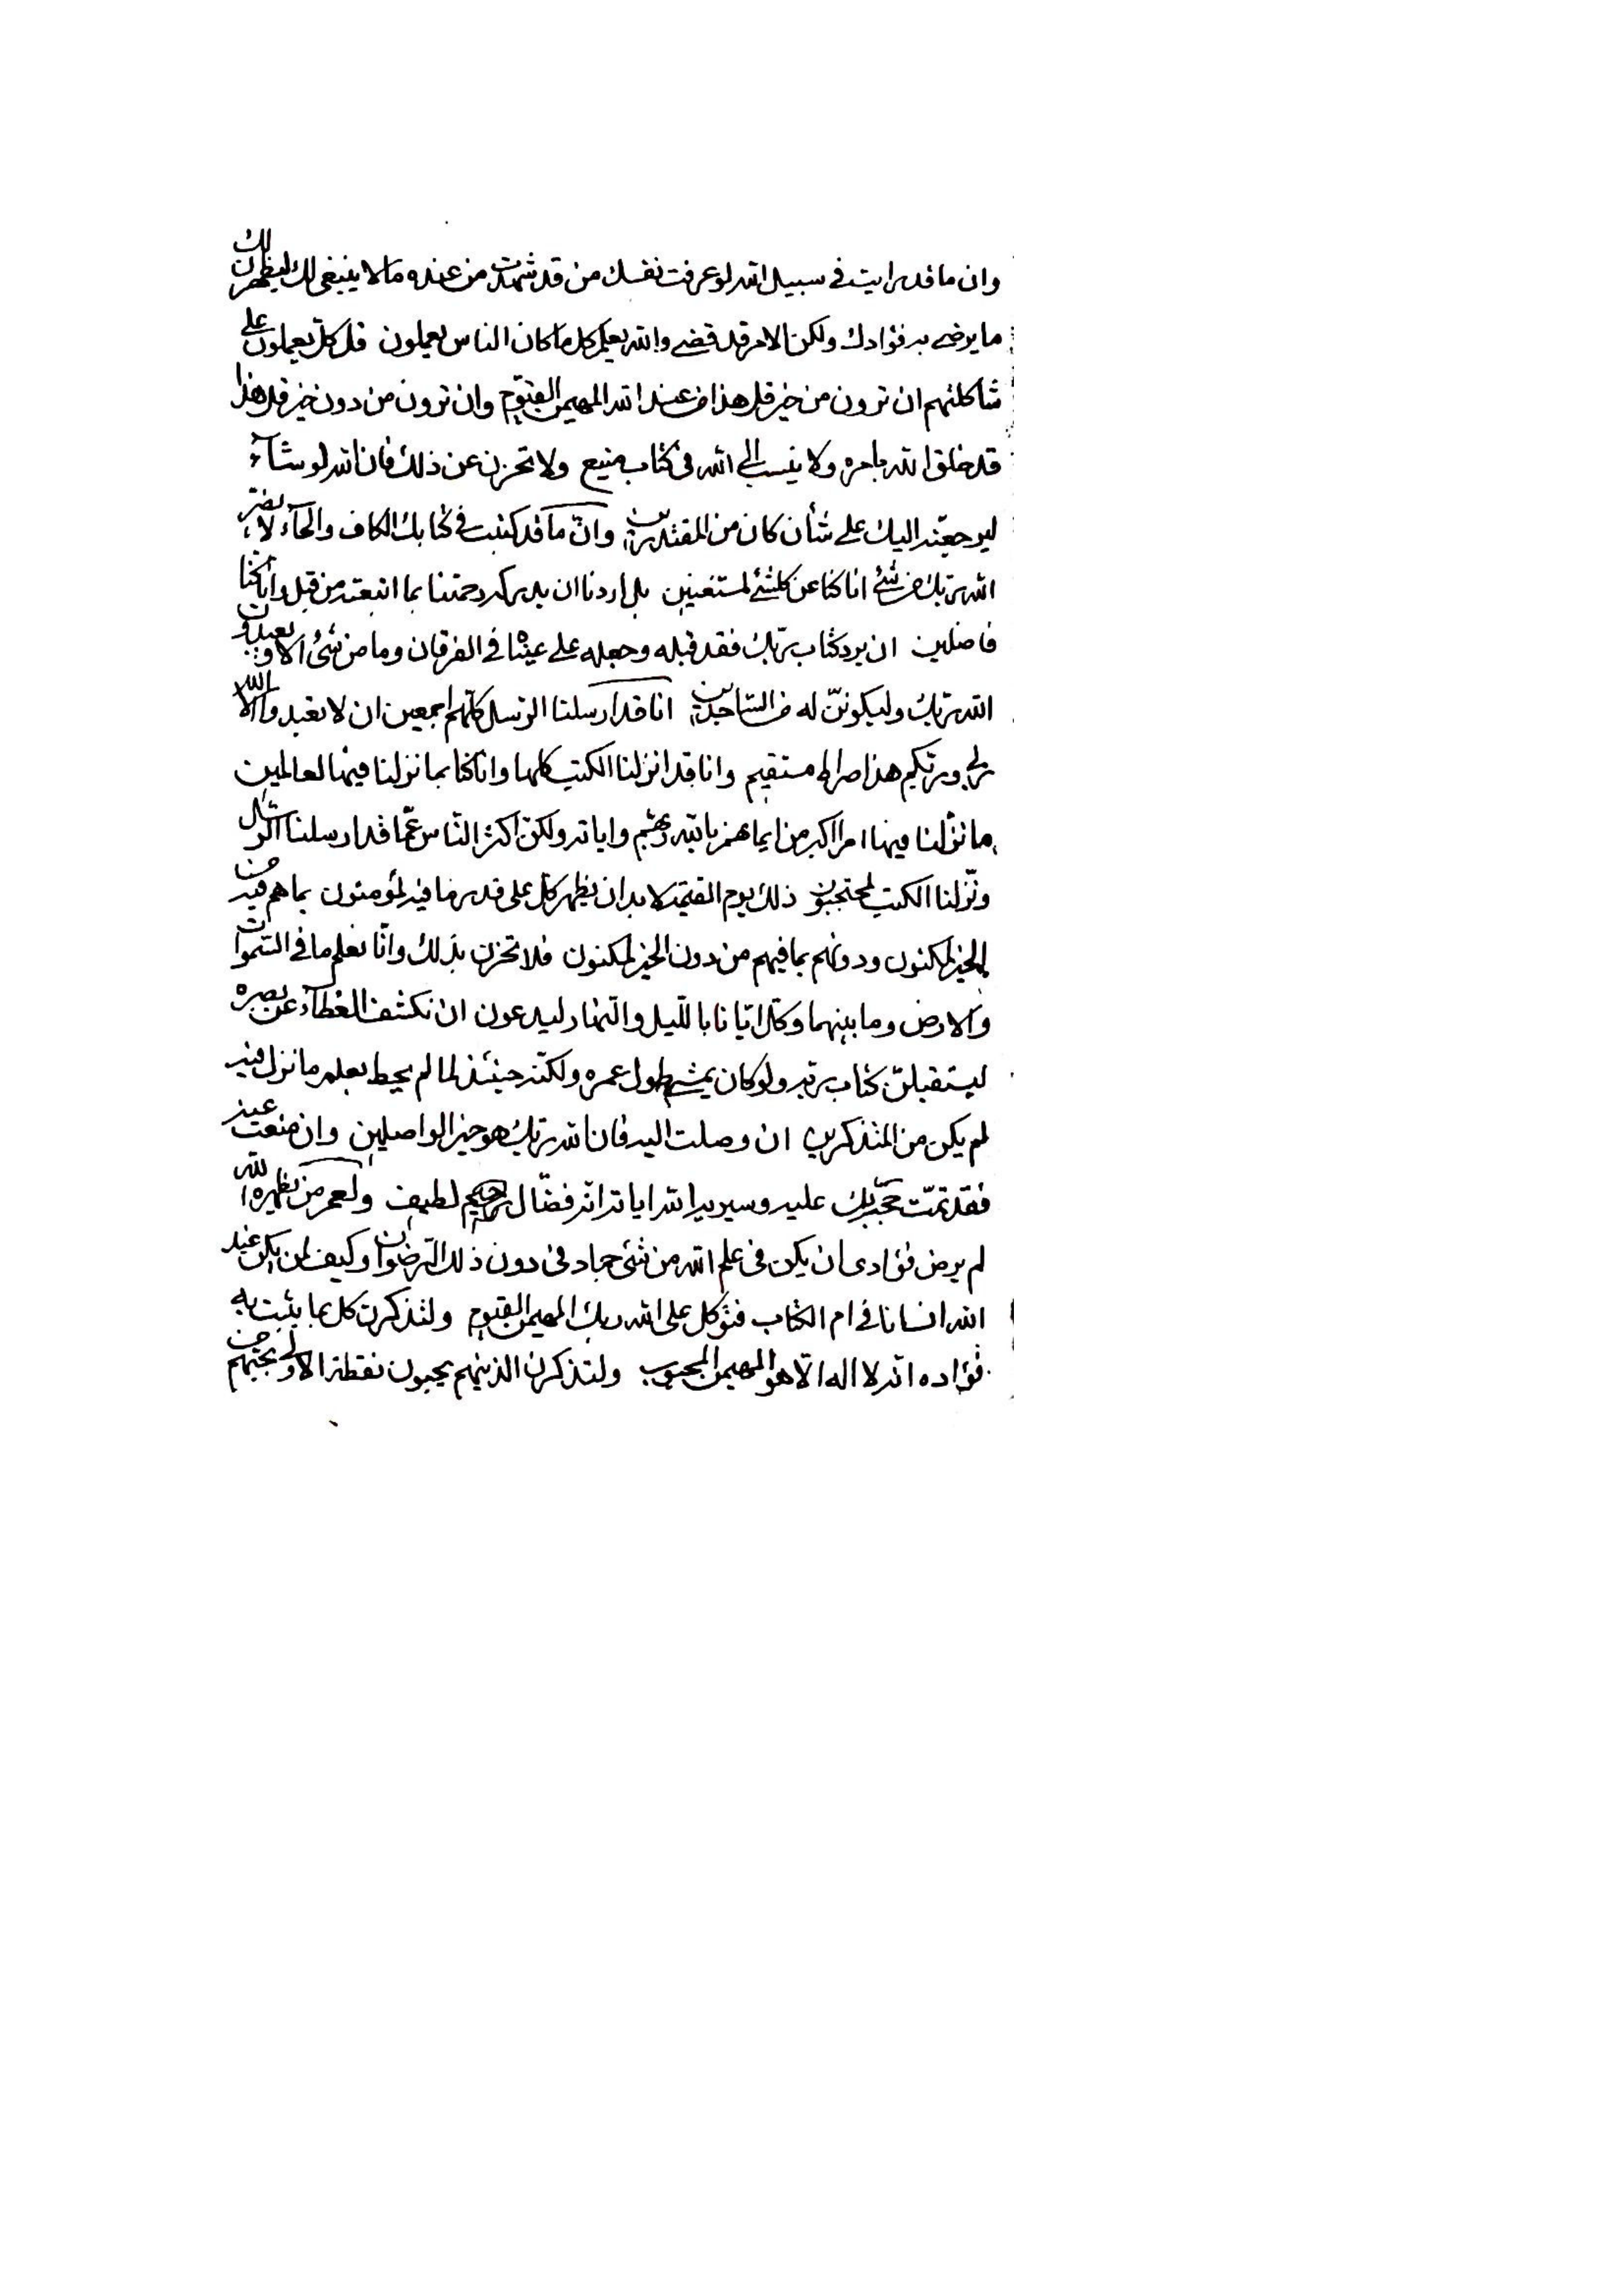 وان ما قد رايت في سبيل الله لو عرفت نفسك من قد شهدت من عنده ما لا ينبغي لك ليظهرن لك
ما يرضى به فؤادك ولكن الامر قد قضى والله يعلم كل ما كان الناس يعملون قل كل يعملون على
شاكلتهم ان ترون من خير قل هذا من عند الله المهيمن القيّوم وان ترون من دون خير قل هذا
قد خلق الله بامره ولا ينسب الى الله في كتاب منيع ولا تحزن عن ذلك فان الله لو شآء
ليرجعنّه اليك على شأن كان من المقتدرين وانّ ما قد كتبت في كتابك الكاف والحآء لا يضر
الله ربك من شئ انا كنا عن كلشئ لمستغنين بل اردنا ان يدركه رحمتنا بما اتبعته من قبل وانا كنا
فاضلين ان يرد كتاب ربّك فقد قبله وجعله على عينه في الفرقان وما من شئ الا و يعبدون
الله ربك وليكوننّ له من الساجدين انا قد ارسلنا الرسل كلّهم اجمعين ان لا تعبدوا الا الله
ربي وربّكم هذا صراط مستقيم وانا قد انزلنا الكتب كلها وانا كنا بما نزلنا فيها لعالمين
ما نزّلنا فيها امرا اكبر من ايمانهم بالله ربّهم واياته ولكن اكثر النّاس عمّا قد ارسلنا الرسل
ونزّلنا الكتب لمحتجبون ذلك يوم القيمة لا بد ان يظهر كل على قدر ما فيه لمؤمنون بما هم فيه من
الخير لمكنون ودونهم بما فيهم من دون الخير لمكنون فلا تحزن بذلك وانّا نعلم ما في السّموات
والارض وما بينهما وكل ايّانا بالليل والنّهار ليدعون ان نكشف الغطآء عن بصره
ليستقبلنّ كتاب ربه ولو كان يمشى طول عمره ولكنّه حينئذ لما لم يحط بعلمه ما نزل فيه
لم يكن من المتذكرين ان وصلت اليه فان الله ربّك هو خير الواصلين وان منعت عنه
فقد تمّت حجّة ربك عليه وسيريه الله اياته انّه فضّال رحيم لطيف ولعمر من يظهره الله
لم يرض فؤادى ان يكن في علم الله من شئ جماد في دون ذلك الرضوان وكيف لمن يكن عند
الله انسانا في ام الكتاب فتوكل على الله ربك المهيمن القيوم ولتذكرن كل بما يثبت به
فؤاده انه لا اله الّا هو المهيمن المحبوب ولتذكرن الذينهم يحبون نقطة الاولى من يحبّهم